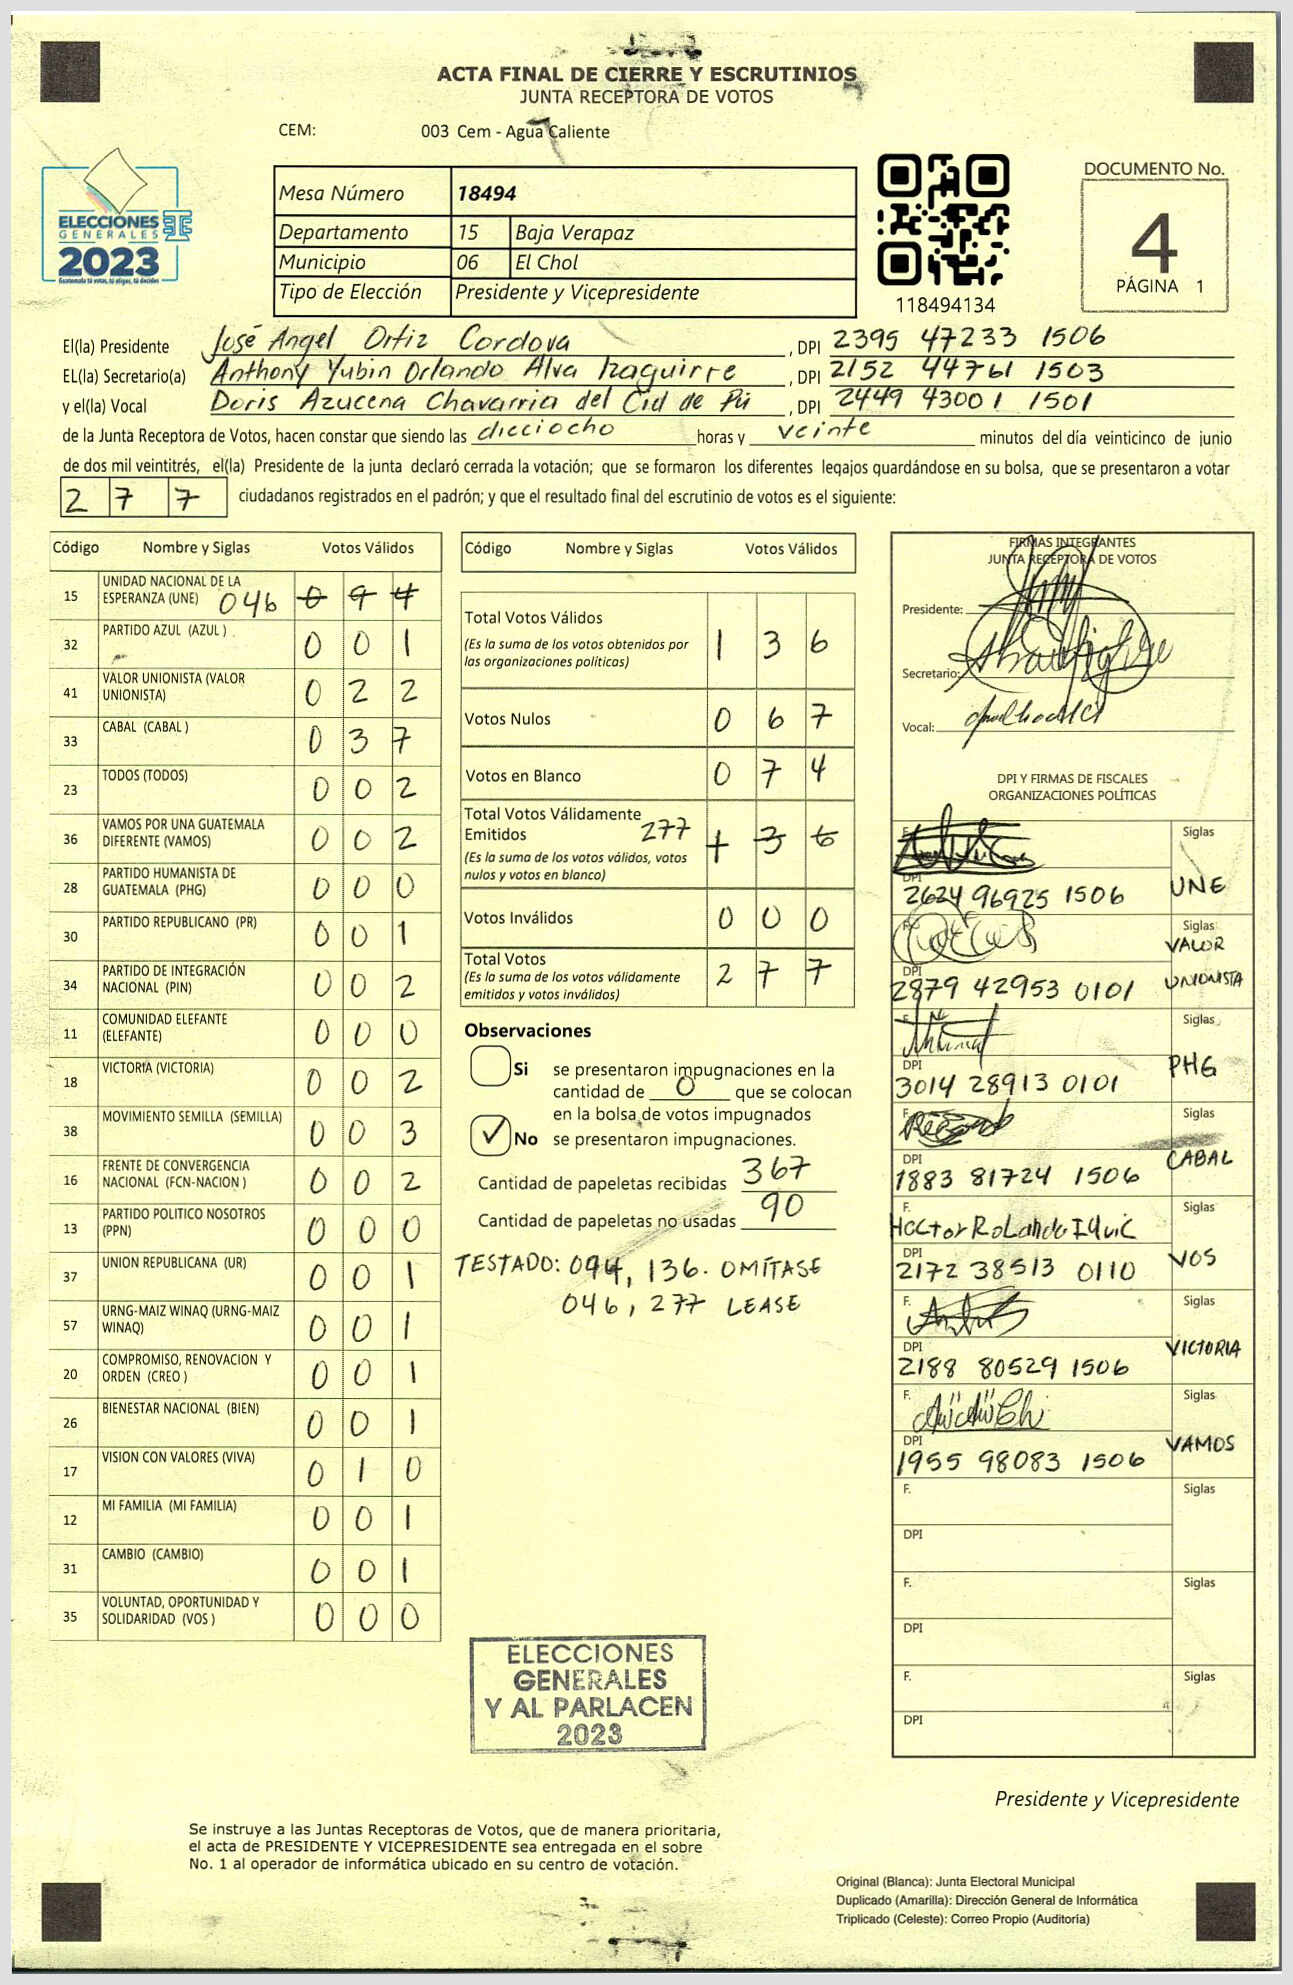 ACTA FINAL DE CIERRE Y ESCRUTINIOS
JUNTA RECEPTORA DE VOTOS
CEM: 003 Cem - Agua Caliente
ELECCIONES
GENERALES
2023
Guatemala tú votas, tú eliges, tú decides
Mesa Número 18494
Departamento 15 Baja Verapaz
Municipio 06 El Chol
Tipo de Elección Presidente y Vicepresidente
118494134
DOCUMENTO No.
4
PÁGINA 1
El(la) Presidente José Angel Ortiz Cordova , DPI 2395 47233 1506
EL(la) Secretario(a) Anthony Yubin Orlando Alva Izaguirre , DPI 2152 44761 1503
y el(la) Vocal Doris Azucena Chavarria del Cid de Pú , DPI 2449 43001 1501
de la Junta Receptora de Votos, hacen constar que siendo las dicciocho horas y veinte minutos del día veinticinco de junio
de dos mil veintitrés, el(la) Presidente de la junta declaró cerrada la votación; que se formaron los diferentes legajos guardándose en su bolsa, que se presentaron a votar
2 7 7 ciudadanos registrados en el padrón; y que el resultado final del escrutinio de votos es el siguiente:
Código Nombre y Siglas Votos Válidos
15 UNIDAD NACIONAL DE LA
ESPERANZA (UNE) 046 0 9 4
32 PARTIDO AZUL (AZUL ) 0 0 1
41 VALOR UNIONISTA (VALOR
UNIONISTA) 0 2 2
33 CABAL (CABAL ) 0 3 7
23 TODOS (TODOS) 0 0 2
36 VAMOS POR UNA GUATEMALA
DIFERENTE (VAMOS) 0 0 2
28 PARTIDO HUMANISTA DE
GUATEMALA (PHG) 0 0 0
30 PARTIDO REPUBLICANO (PR) 0 0 1
34 PARTIDO DE INTEGRACIÓN
NACIONAL (PIN) 0 0 2
11 COMUNIDAD ELEFANTE
(ELEFANTE) 0 0 0
18 VICTORIA (VICTORIA) 0 0 2
38 MOVIMIENTO SEMILLA (SEMILLA) 0 0 3
16 FRENTE DE CONVERGENCIA
NACIONAL (FCN-NACION ) 0 0 2
13 PARTIDO POLITICO NOSOTROS
(PPN) 0 0 0
37 UNION REPUBLICANA (UR) 0 0 1
57 URNG-MAIZ WINAQ (URNG-MAIZ
WINAQ) 0 0 1
20 COMPROMISO, RENOVACION Y
ORDEN (CREO ) 0 0 1
26 BIENESTAR NACIONAL (BIEN) 0 0 1
17 VISION CON VALORES (VIVA) 0 1 0
12 MI FAMILIA (MI FAMILIA) 0 0 1
31 CAMBIO (CAMBIO) 0 0 1
35 VOLUNTAD, OPORTUNIDAD Y
SOLIDARIDAD (VOS ) 0 0 0
Código Nombre y Siglas Votos Válidos
Total Votos Válidos
(Es la suma de los votos obtenidos por
las organizaciones políticas) 1 3 6
Votos Nulos 0 6 7
Votos en Blanco 0 7 4
Total Votos Válidamente
Emitidos 277 1 3 6
(Es la suma de los votos válidos, votos
nulos y votos en blanco)
Votos Inválidos 0 0 0
Total Votos
(Es la suma de los votos válidamente
emitidos y votos inválidos) 2 7 7
Observaciones
Si se presentaron impugnaciones en la
cantidad de 0 que se colocan
en la bolsa de votos impugnados
✓ No se presentaron impugnaciones.
Cantidad de papeletas recibidas 367
Cantidad de papeletas no usadas 90
TESTADO: 094, 136. OMÍTASE
046, 277 LEASE
ELECCIONES
GENERALES
Y AL PARLACEN
2023
FIRMAS INTEGRANTES
JUNTA RECEPTORA DE VOTOS
Presidente:
Secretario:
Vocal:
DPI Y FIRMAS DE FISCALES
ORGANIZACIONES POLÍTICAS
F. Siglas
DPI
2624 96925 1506 UNE
F. Siglas
VALOR
DPI
2879 42953 0101 UNIONISTA
F. Siglas
DPI
3014 28913 0101 PHG
F. Siglas
DPI
1883 81724 1506 CABAL
F. Siglas
Hector Rolando Iquic
DPI
2172 38513 0110 VOS
F. Siglas
DPI
2188 80529 1506 VICTORIA
F. Siglas
DPI
1955 98083 1506 VAMOS
F. Siglas
DPI
F. Siglas
DPI
F. Siglas
DPI
Presidente y Vicepresidente
Se instruye a las Juntas Receptoras de Votos, que de manera prioritaria,
el acta de PRESIDENTE Y VICEPRESIDENTE sea entregada en el sobre
No. 1 al operador de informática ubicado en su centro de votación.
Original (Blanca): Junta Electoral Municipal
Duplicado (Amarilla): Dirección General de Informática
Triplicado (Celeste): Correo Propio (Auditoría)